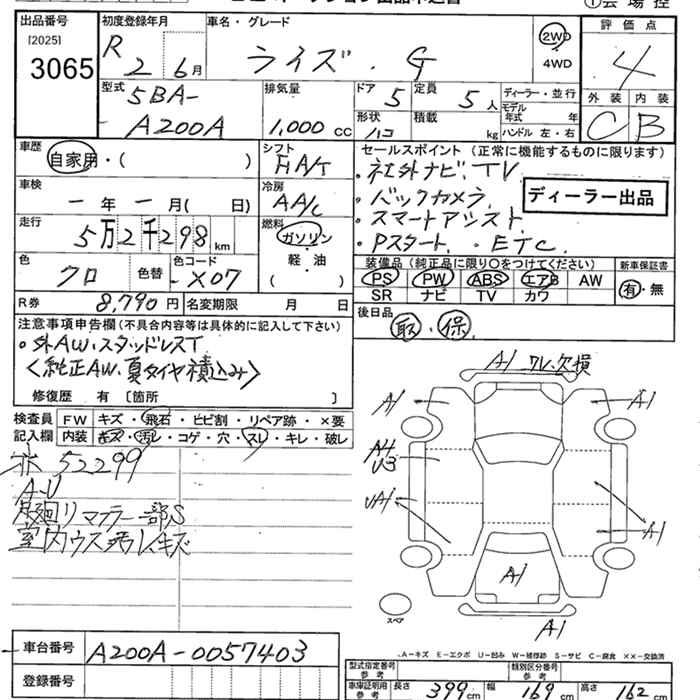 出品番号
[2025]
3065
初度登録年月
R 2 6月
車名・グレード
ライズ・G
2WD
4WD
評価点
4
外装 内装
C B
型式
5BA-
A200A
排気量
1,000 cc
ドア
5
定員
5 人
形状
ハコ
積載
kg
ディーラー・並行
モデル年式 年
ハンドル 左・右
車歴
自家用・( )
シフト
FA/T
車検
一年一月( 日)
冷房
AA/C
走行
5万2千298km
燃料
ガソリン
軽・油
( )
色
クロ
色替
色コード
-X07
R券 8,790円
名変期限 月 日
セールスポイント(正常に機能するものに限ります)
・社外ナビ.TV
・バックカメラ
・スマートアシスト
・Pスタート ・ETC.
ディーラー出品
装備品(純正品に限り○をつけてください)
PS PW ABS エアB AW
SR ナビ TV カワ
新車保証書
有・無
後日品
取・保
注意事項申告欄(不具合内容等は具体的に記入して下さい)
・外AW.スタッドレスT
<純正AW.夏タイヤ積込み>
修復歴 有 〔箇所 〕
検査員記入欄
FW キズ・飛石・ヒビ割・リペア跡・×要
内装 キズ・汚レ・コゲ・穴・スレ・キレ・破レ
52299
A・U
下廻りマフラー一部S
室内ウス汚レキズ
A1 ワレ、欠損
A1 A1
A4
U3
UA1
A1
A1
A1
スペア
A-キズ E-エクボ U-凹み W-補修跡 S-サビ C-腐食 ××-交換済
車台番号
A200A-0057403
登録番号
型式指定番号 参考
類別区分番号 参考
車庫証明用 参考
長さ 399cm 幅 169cm 高さ 162cm